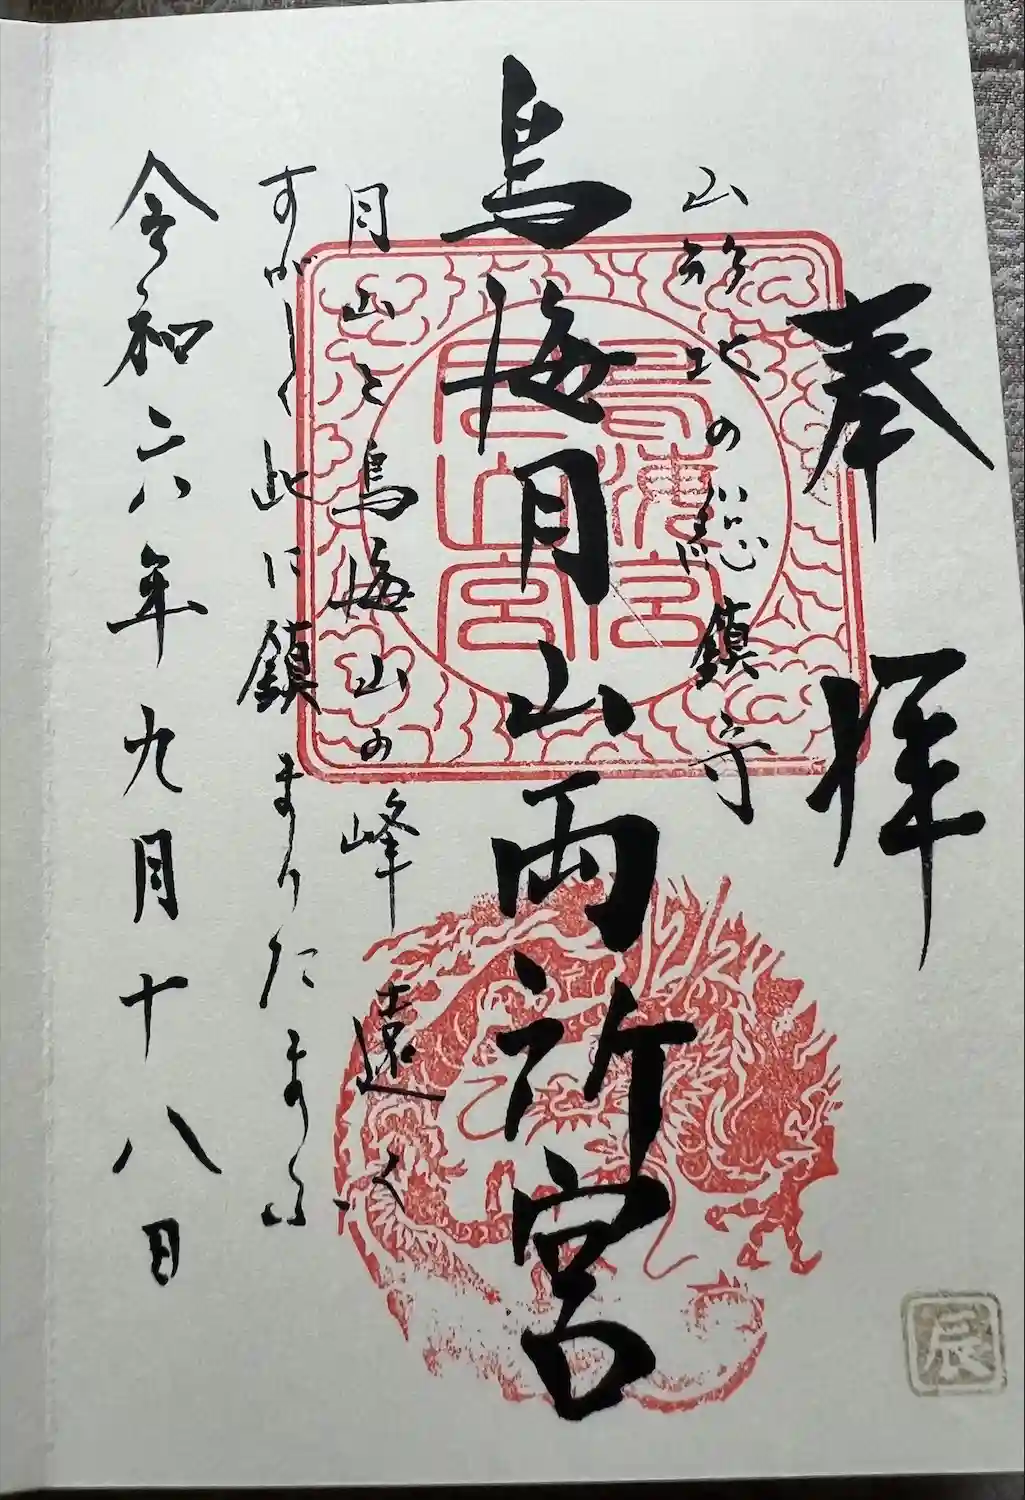 奉拝
山形北の総鎮守
鳥海月山両所宮
月山と鳥海山の峰遠く
すがしく此に鎮まりたまふ
令和六年九月十八日
鳥海宮
月山宮
辰